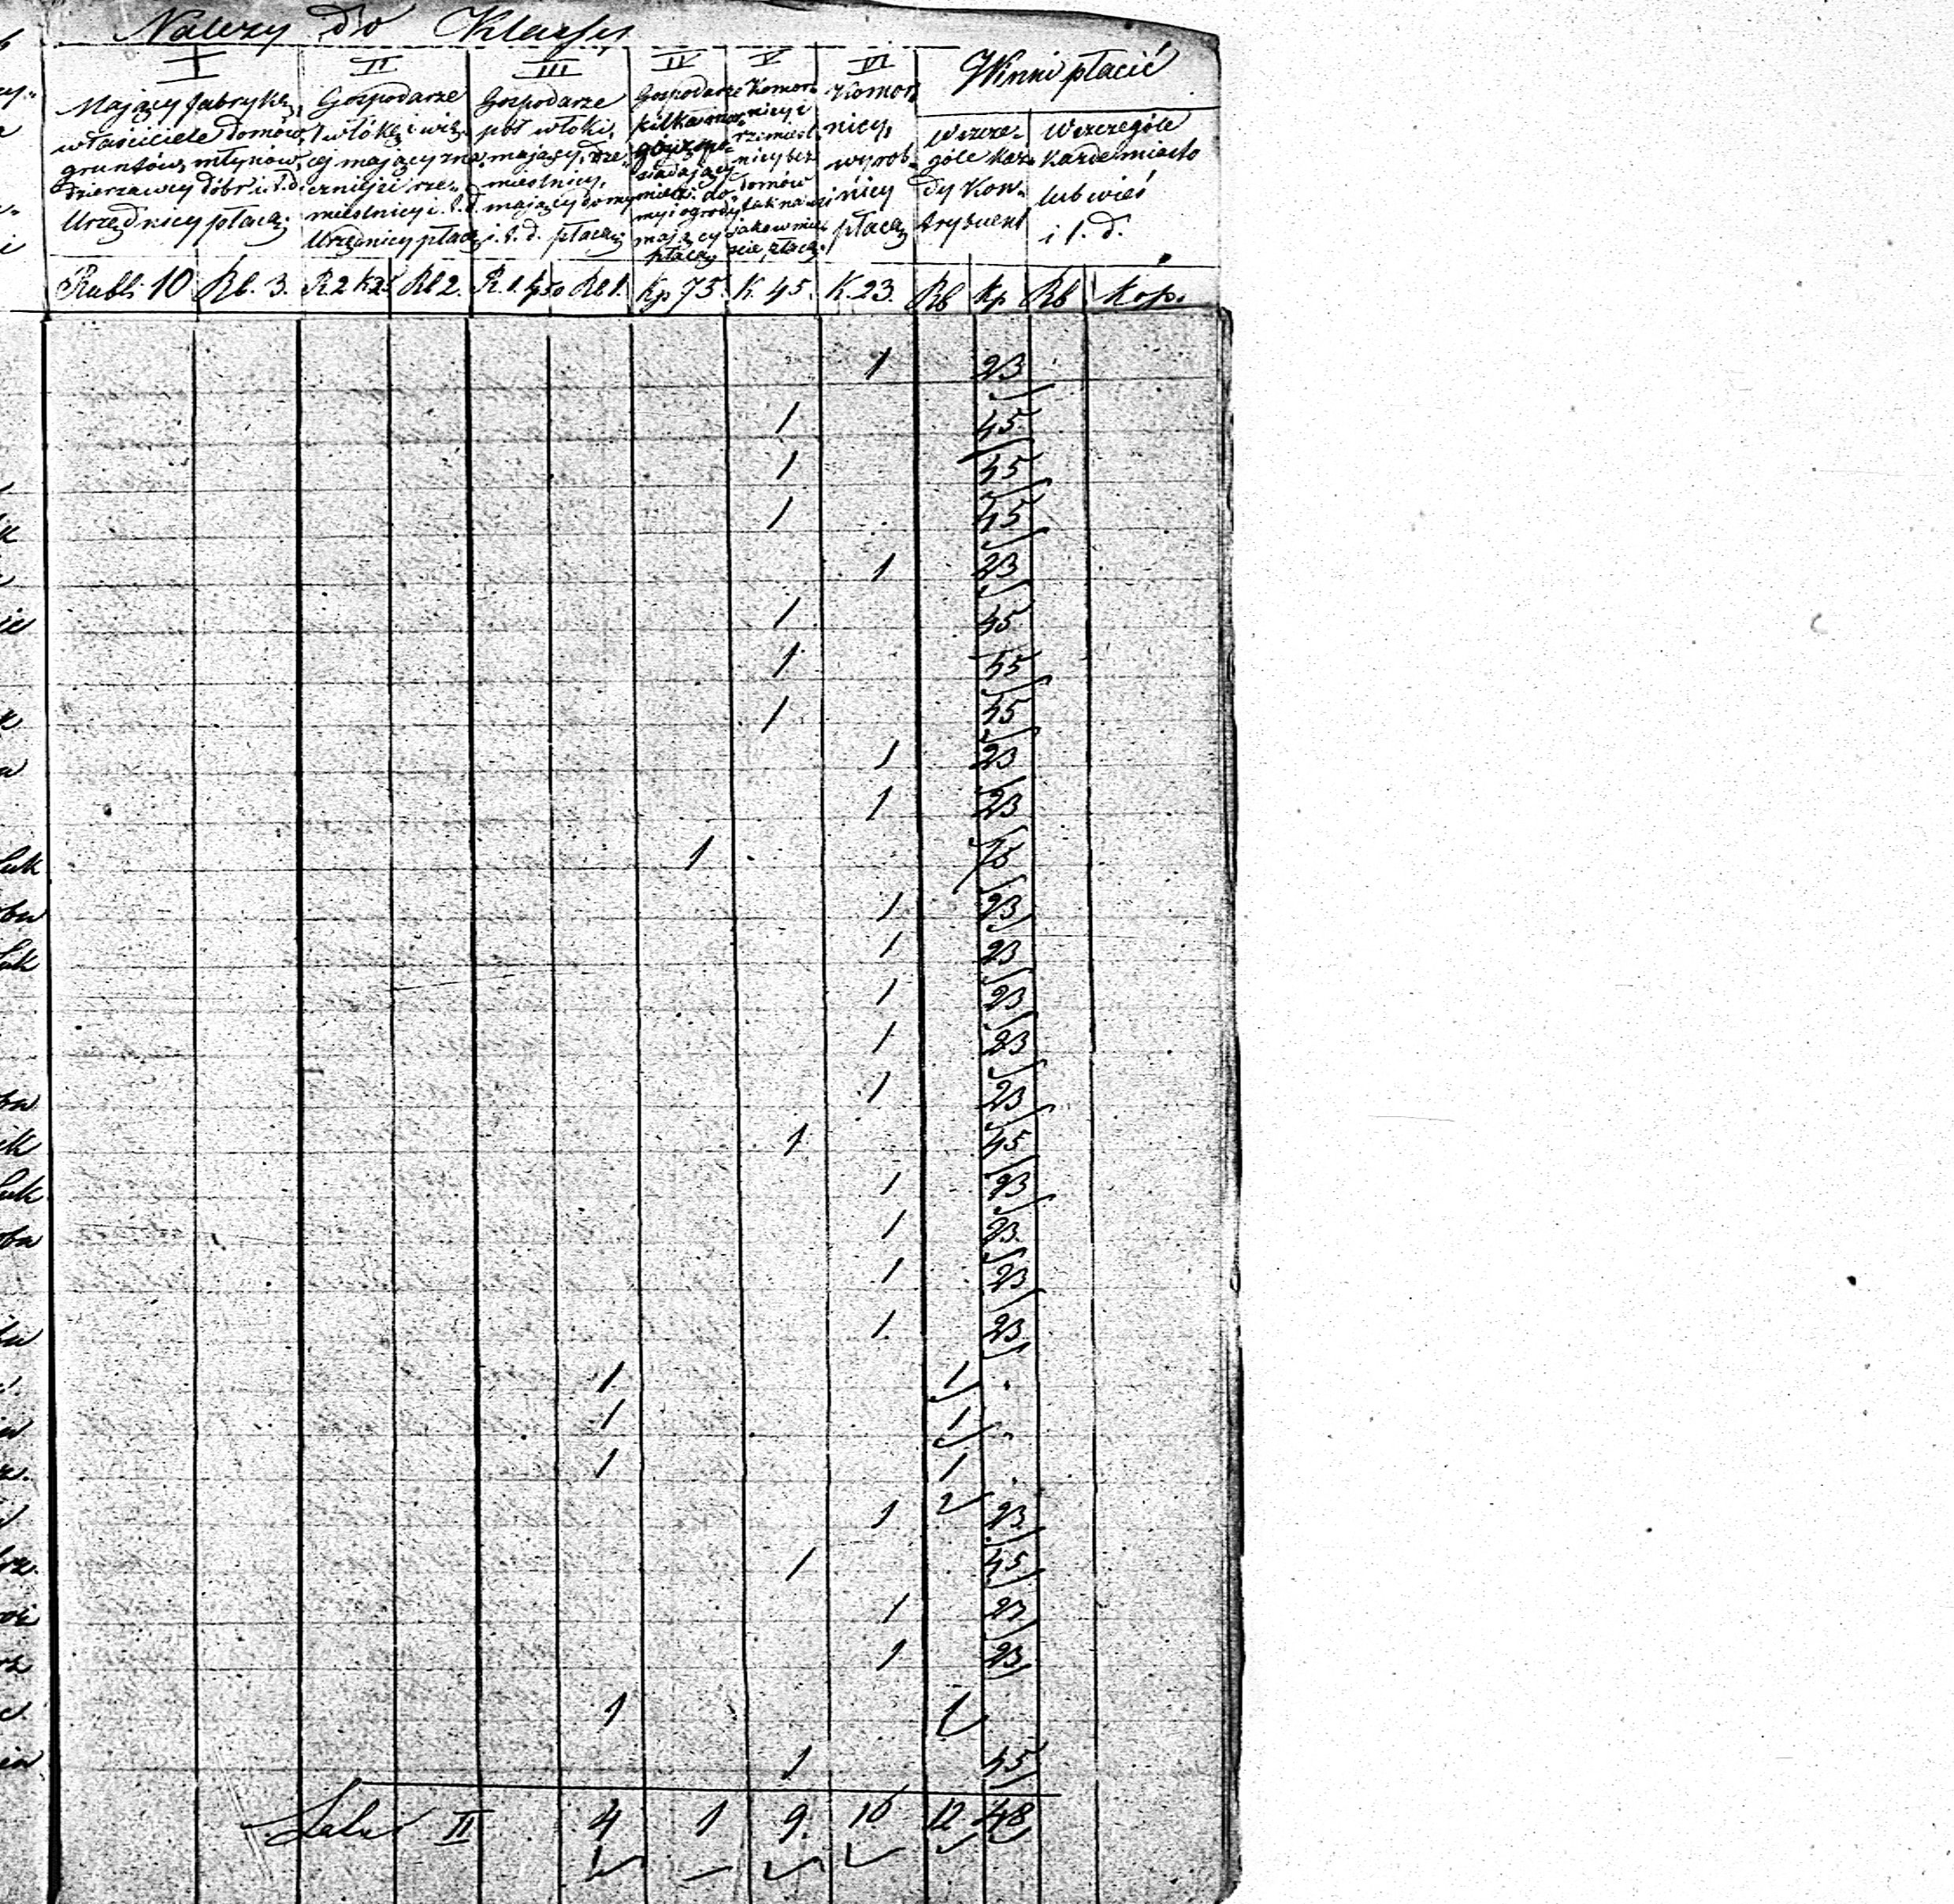 Należy do Klassy
I II III IV V VI Winni płacić
Mający fabrykę,
właściciele domów,
gruntów, młynów,
Dzierżawcy dóbr i t. d.
Urzędnicy płacą:
Gospodarze
1 włókę i wię-
cej mający zna-
czniejsi rze-
mieślnicy i t. d.
Urzędnicy płacą
Gospodarze
pół włóki,
mający, rze-
mieślnicy,
mający domy
i t. d. płacą
Gospodarze
kilka mor-
gów po-
siadający
mieszk. do-
my i ogrody
mający
płacą
Komor-
nicy i
rzemieśl-
nicy bez
domów
tak na wsi
jako w mie-
ście, płacą
Komor-
nicy,
wyrob-
nicy
płacą
wszcze-
góle każ-
dy Kon-
trybuent
wszczególe
każde miasto
lub wieś
i t. d.
Rubli 10 Rb. 3. R2 k25 Rb 2. R. 1. k50 Rb 1. Kp 75. K. 45. K. 23. Rb Kp Rb Kop.
1 23
1 45
1 45
1 45
1 23
1 45
1 45
1 45
1 23
1 23
1 75
1 23
1 23
1 23
1 23
1 23
1 45
1 23
1 23
1 23
1 23
1 1 .
1 1 .
1 1 .
1 2 23
1 45
1 23
1 23
1 1
1 45
Latus II 4 1 9. 16 12 48